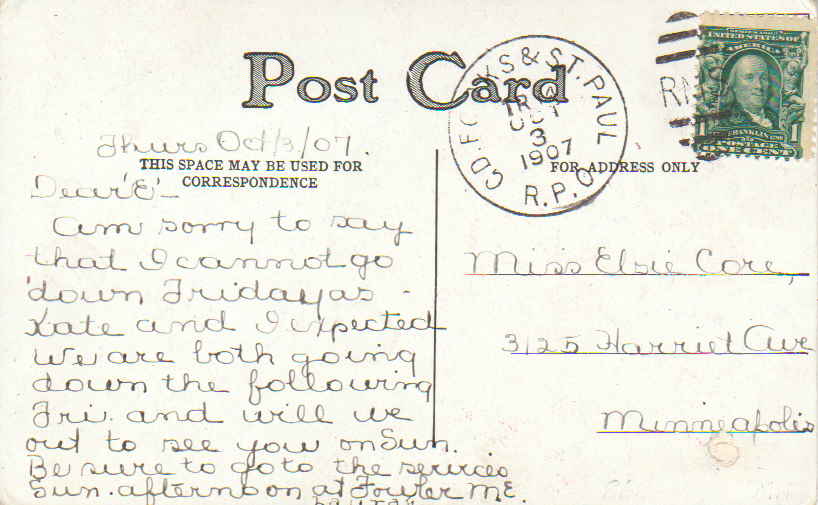 Post Card
GD. FORKS & ST. PAUL
TR
OCT
3
1907
R.P.O.
RM
UNITED STATES OF
AMERICA
1
FRANKLIN
POSTAGE
ONE CENT
Thurs Oct/3/07.
THIS SPACE MAY BE USED FOR
CORRESPONDENCE
FOR ADDRESS ONLY
Dear 'E' -
Am sorry to say
that I cannot go
down Friday as -
Kate and I expected
We are both going
down the following
Fri. and will we
out to see you on Sun.
Be sure to go to the services
Sun. afternoon at Fowler M.E.
Miss Elsie Core,
3125 Harriet Ave
Minneapolis